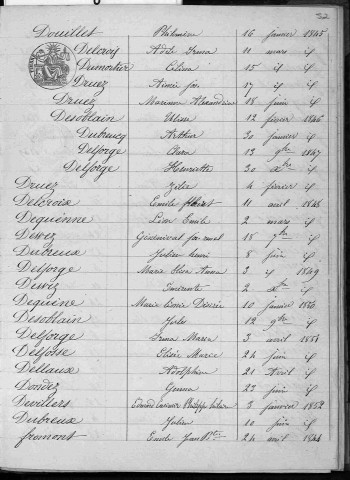 Douillet Philomène 16 janvier 1845
Delcroix Adèle Irma 11 mars id
Dumortier Célina 15 id id
Druez Aimée jos. 17 id id
Druez Marianne Alexandrine 18 juin id
Desoblain Ulisse 12 février 1846
Dubrucq Arthur 30 janvier id
Delforge Clara 13 9bre 1847
Delforge Henriette 30 Xbre id
Druez Zélie 4 février id
Delcroix Emile 11 avril 1848
Dequenne Léon Emile 2 mars id
18 7bre id
Dubreux Julien henri 8 juin id
Delforge Marie Elisa 3 id 1849
2 Xbre id
Dequenne Marie Désirée 10 janvier 1850
Desoblain Jules 12 9bre id
Delforge Irma Maria 3 avril 1851
Delfosse Elisée Marie 24 juin id
Dellaux Adolphine 21 Avril id
Dordez Gemma 22 juin id
Devillers Edmond Philippe 3 janvier 1852
Dubreux Julien 10 juin id
fromont Emile Jean Bte 24 avril 1844